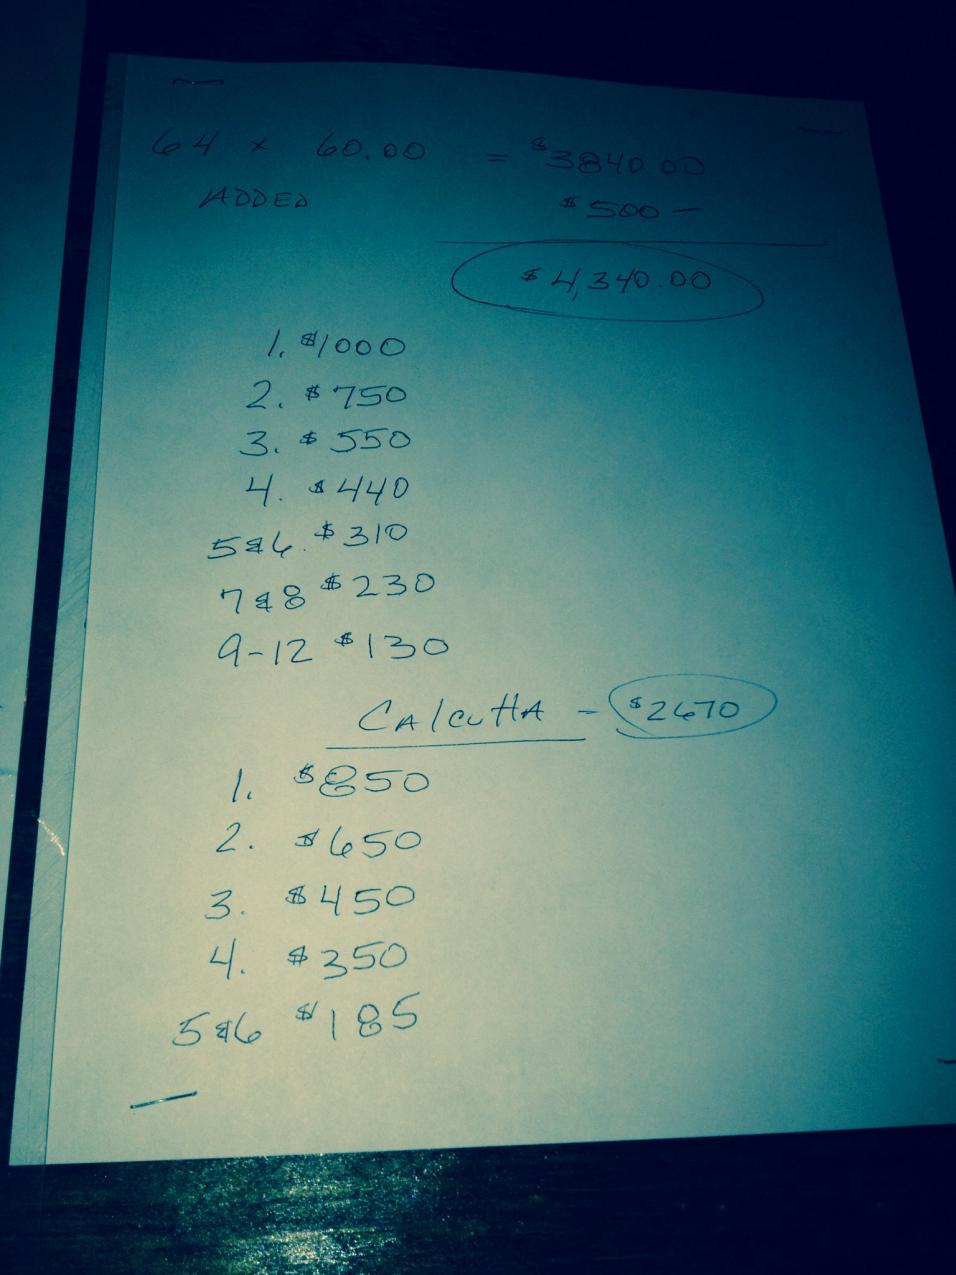 64 x 60.00 = $3840.00
ADDED $500 —
$4,340.00
1. $1000
2. $750
3. $550
4. $440
5&6. $310
7&8 $230
9-12 $130
CALCUTTA - $2670
1. $850
2. $650
3. $450
4. $350
5&6 $185